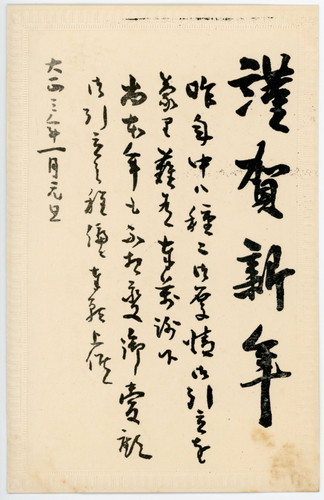 謹賀新年
昨年中ハ種々御厚情御引立を
蒙り難有奉萬謝候
尚本年も不相変御愛顧
御引立之程偏ニ奉願上候
大正三年一月元旦